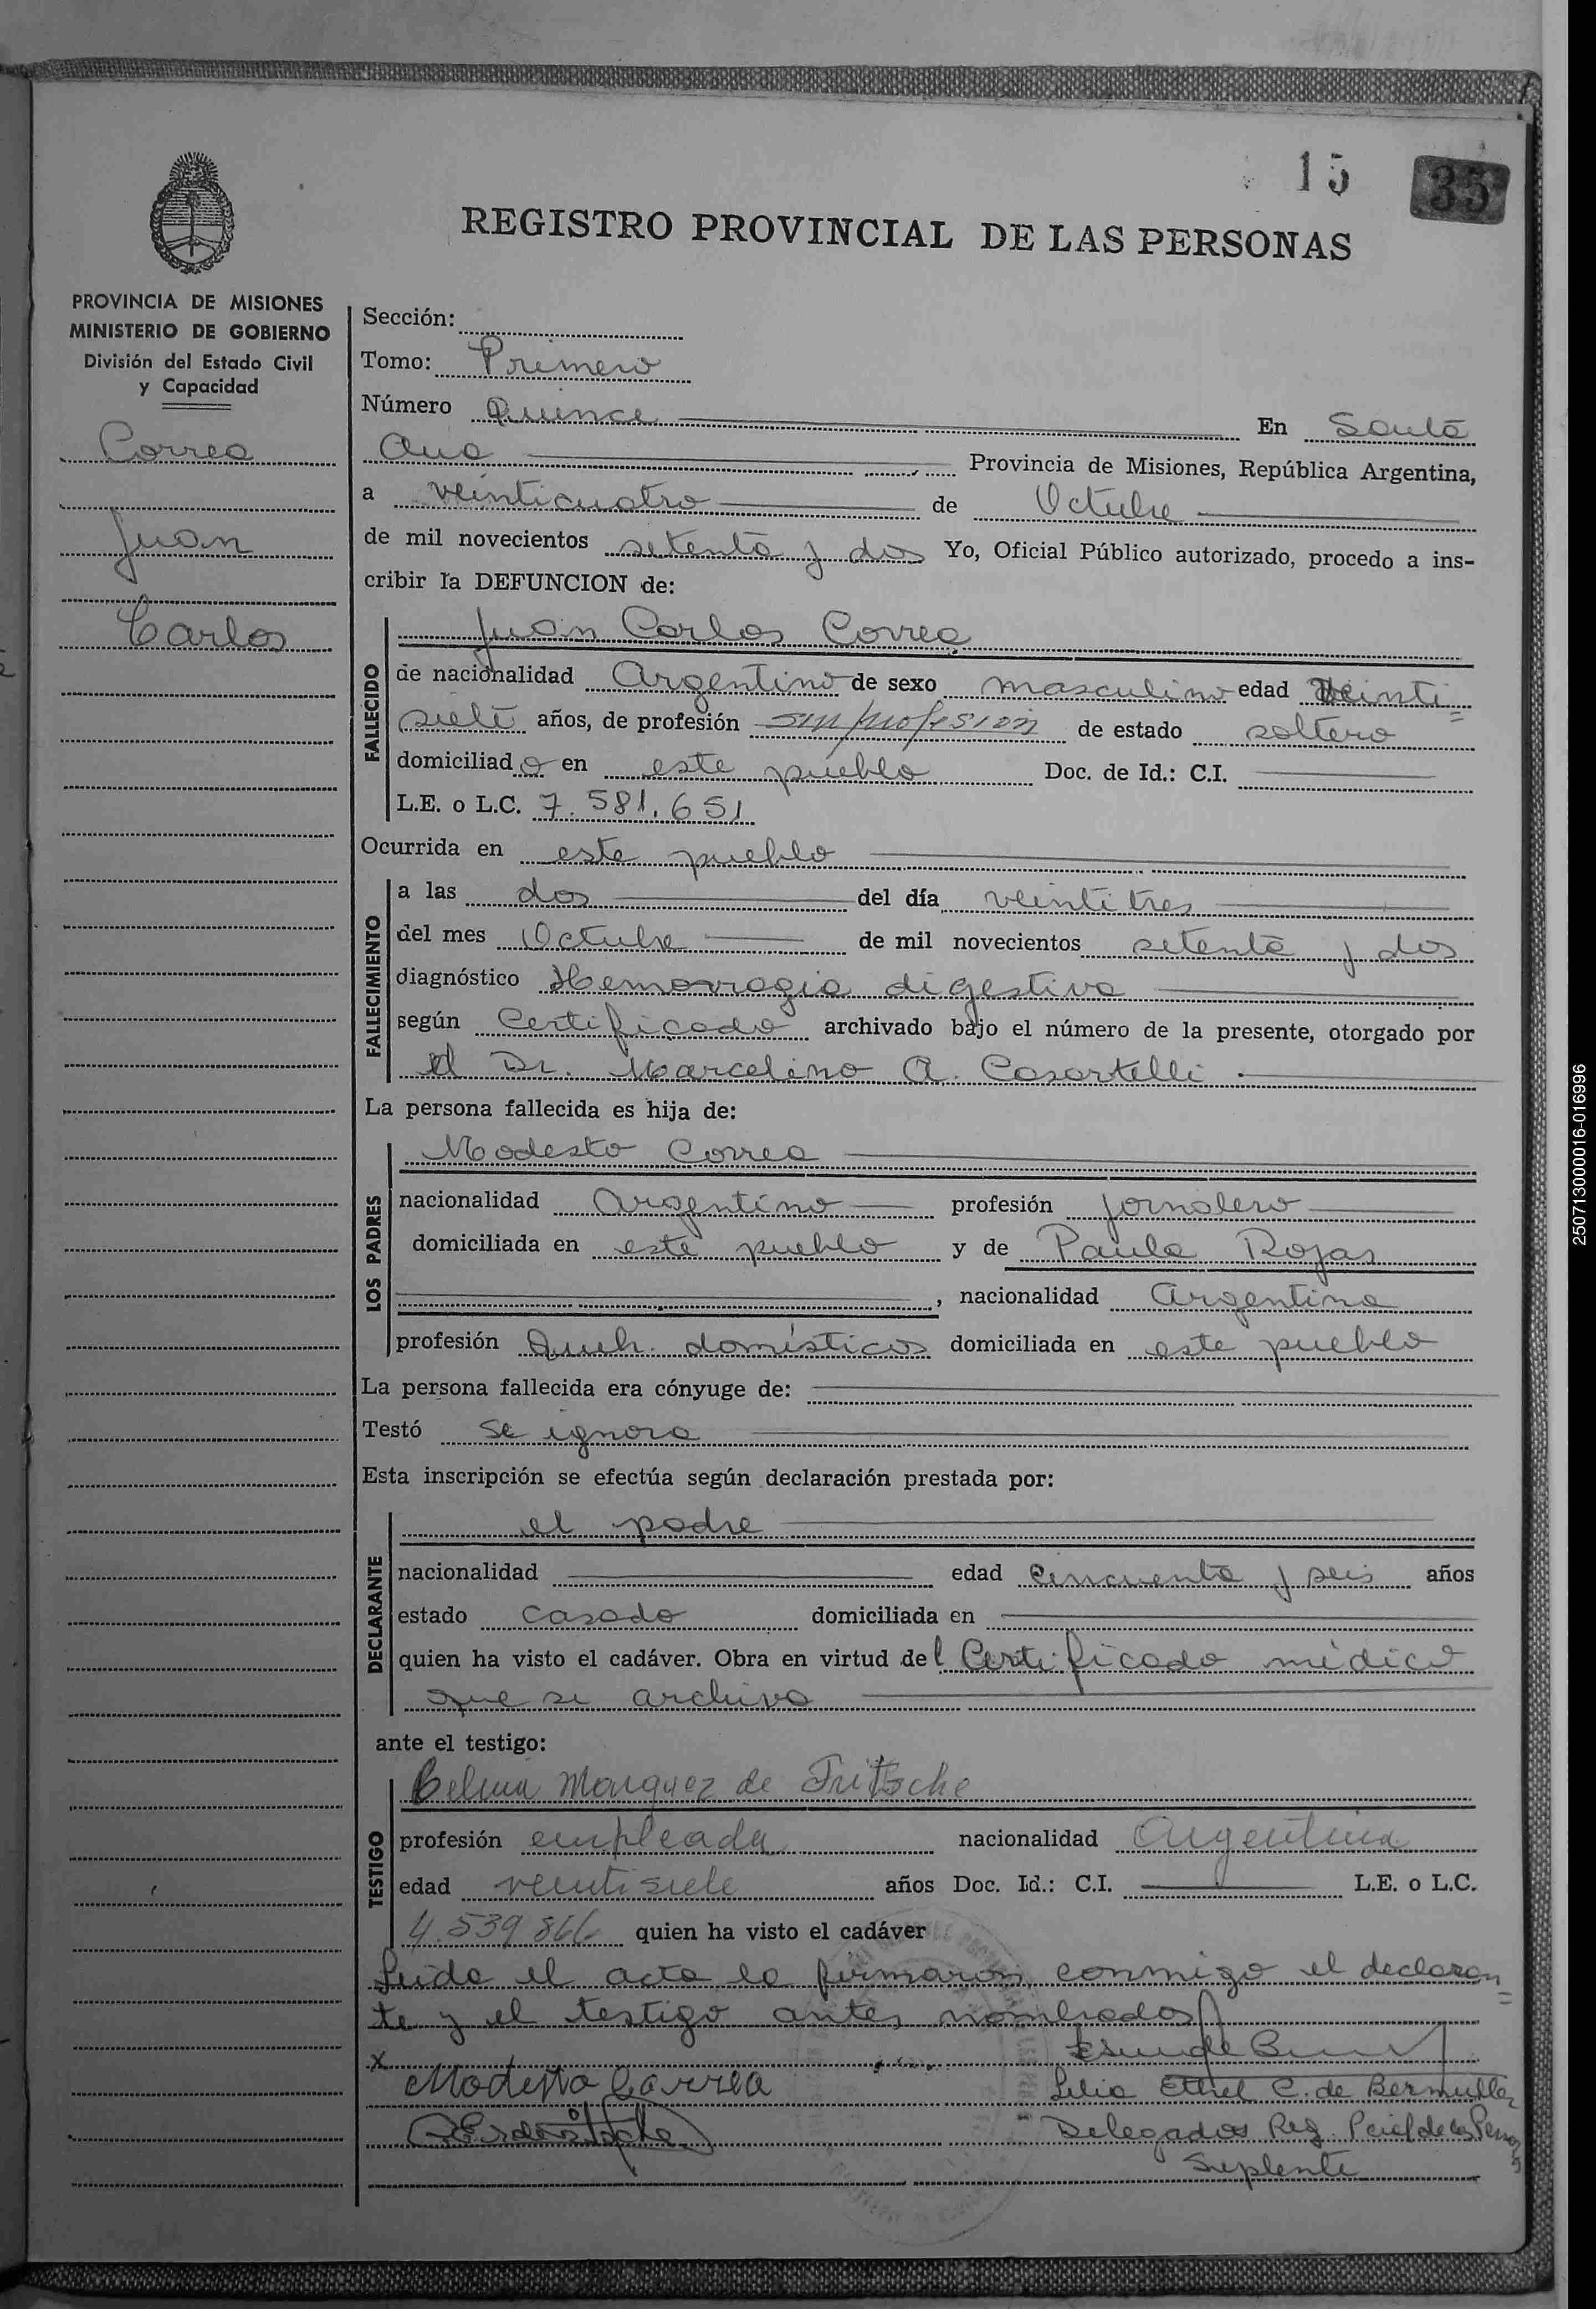 15 35
REGISTRO PROVINCIAL DE LAS PERSONAS
PROVINCIA DE MISIONES
MINISTERIO DE GOBIERNO
División del Estado Civil
y Capacidad
Correa
Juan
Carlos
Sección:
Tomo: Primero
Número Quince En Santa
Ana Provincia de Misiones, República Argentina,
a veinticuatro de Octubre
de mil novecientos setenta y dos Yo, Oficial Público autorizado, procedo a ins-
cribir la DEFUNCION de:
FALLECIDO
Juan Carlos Correa
de nacionalidad Argentino de sexo masculino edad Veinti=
siete años, de profesión sin profesión de estado soltero
domiciliado en este pueblo Doc. de Id.: C.I.
L.E. o L.C. 7.581.651
Ocurrida en este pueblo
FALLECIMIENTO
a las dos del día veintitres
del mes Octubre de mil novecientos setenta y dos
diagnóstico Hemorragia digestiva
según Certificado archivado bajo el número de la presente, otorgado por
el Dr. Marcelino A. Casartelli.
La persona fallecida es hija de:
LOS PADRES
Modesto Correa
nacionalidad Argentino profesión jornalero
domiciliada en este pueblo y de Paula Rojas
, nacionalidad Argentina
profesión Queh. domésticos domiciliada en este pueblo
La persona fallecida era cónyuge de:
Testó se ignora
Esta inscripción se efectúa según declaración prestada por:
DECLARANTE
el padre
nacionalidad edad Cincuenta y seis años
estado Casado domiciliada en
quien ha visto el cadáver. Obra en virtud del Certificado médico
que se archiva
ante el testigo:
TESTIGO
Marquez de Fritzche
profesión empleada nacionalidad Argentina
edad veintisiete años Doc. Id.: C.I. L.E. o L.C.
4.539.866 quien ha visto el cadáver
Leida el acta la firmaron conmigo el declaran=
te y el testigo antes nombrados
x Modesto Correa
Lilia Ethel C. de
Delegados Reg. de las
Suplente
250713000016-016996